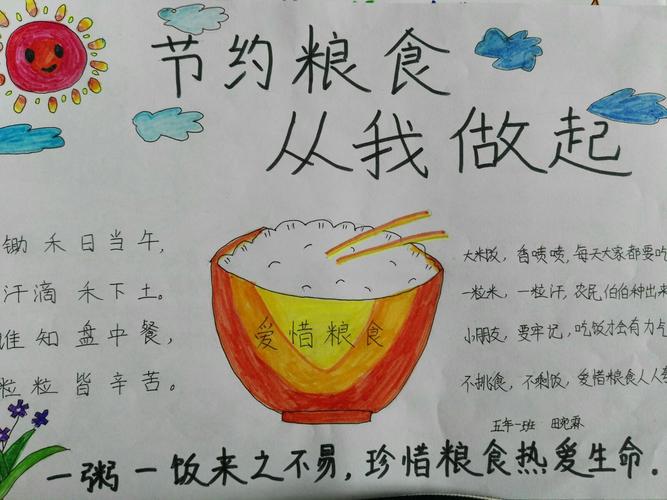 节约粮食
从我做起
锄禾日当午,
汗滴禾下土。
谁知盘中餐,
粒粒皆辛苦。
爱惜粮食
大米饭,香喷喷,每天大家都要吃
一粒米,一粒汗,农民伯伯种出来
小朋友,要牢记,吃饭才会有力气
不挑食,不剩饭,爱惜粮食人人
五年一班 田宛霖
一粥一饭来之不易,珍惜粮食热爱生命.